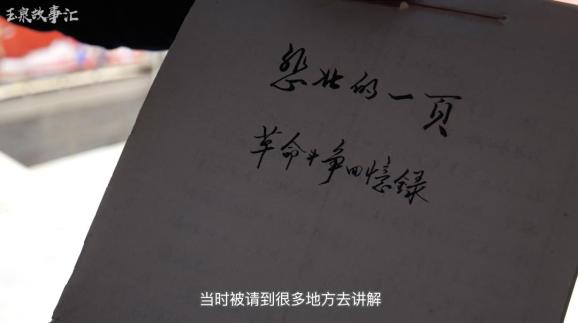 玉泉故事汇
悲壮的一頁
革命斗争回憶録
当时被请到很多地方去讲解